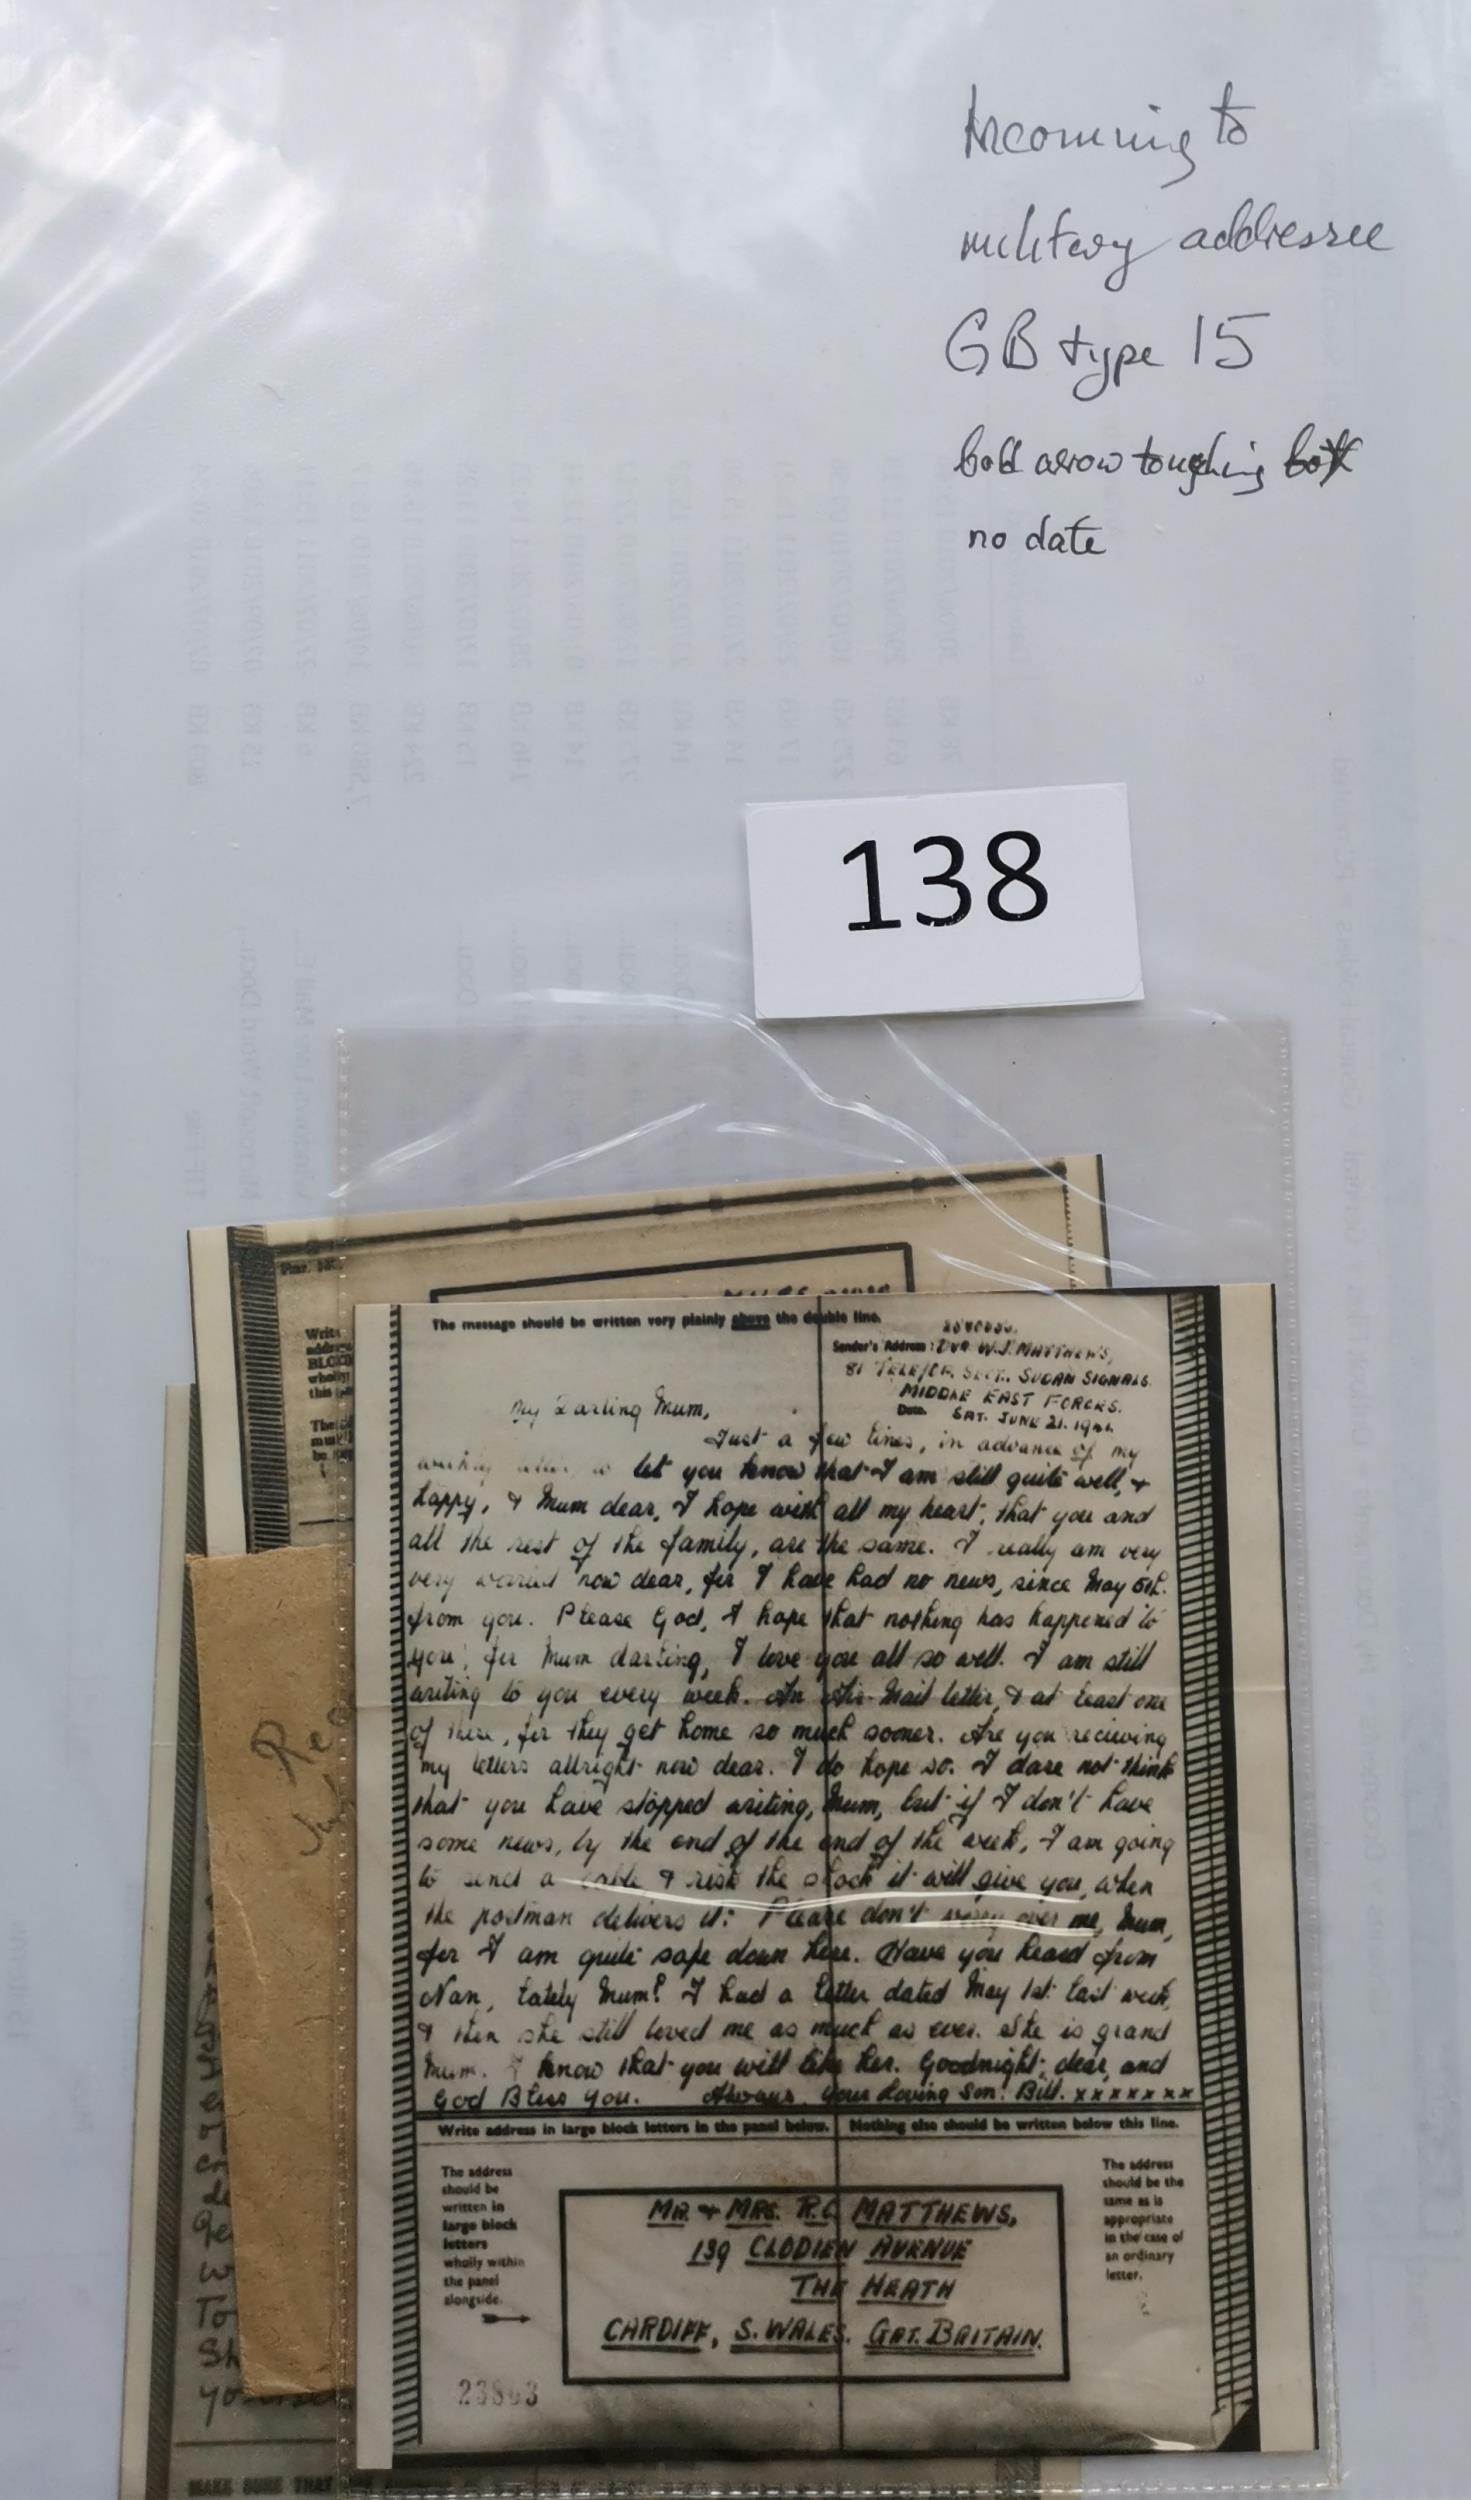 Incoming to
military addressee
GB type 15
bold arrow touching box
no date
138
The message should be written very plainly above the double line.
Sender's Address: DVR. W.J. MATTHEWS,
81 SECT., SUDAN SIGNALS.
MIDDLE EAST FORCES.
Date. SAT. JUNE 21. 1941.
My Darling Mum,
Just a few lines, in advance of my
let you know that I am still quite well, &
happy, & Mum dear, I hope with all my heart, that you and
all the rest of the family, are the same. I really am very
very worried now dear, for I have had no news, since May 5th.
from you. Please God, I hope that nothing has happened to
you, for Mum darling, I love you all so well. I am still
writing to you every week. An Air-Mail letter, & at least one
of these, for they get home so much sooner. Are you recieving
my letters allright now dear. I do hope so. I dare not think
that you have stopped writing, Mum, but if I don't have
some news, by the end of the end of the week, I am going
to send a cable & risk the shock it will give you, when
the postman delivers it. Please don't worry over me, Mum,
for I am quite safe down here. Have you heard from
Nan, lately Mum? I had a letter dated May 1st. last week,
& then she still loved me as much as ever. She is grand
Mum. I know that you will like her. Goodnight, dear, and
God Bless You. Always, Your Loving Son. Bill. x x x x x x x
Write address in large block letters in the panel below. Nothing else should be written below this line.
The address
should be
written in
large block
letters
wholly within
the panel
alongside.
MR. & MRS. R.C. MATTHEWS,
139 CLODIEN AVENUE
THE HEATH
CARDIFF, S. WALES. GRT. BRITAIN.
The address
should be the
same as is
appropriate
in the case of
an ordinary
letter.
23863
MAKE SURE THAT